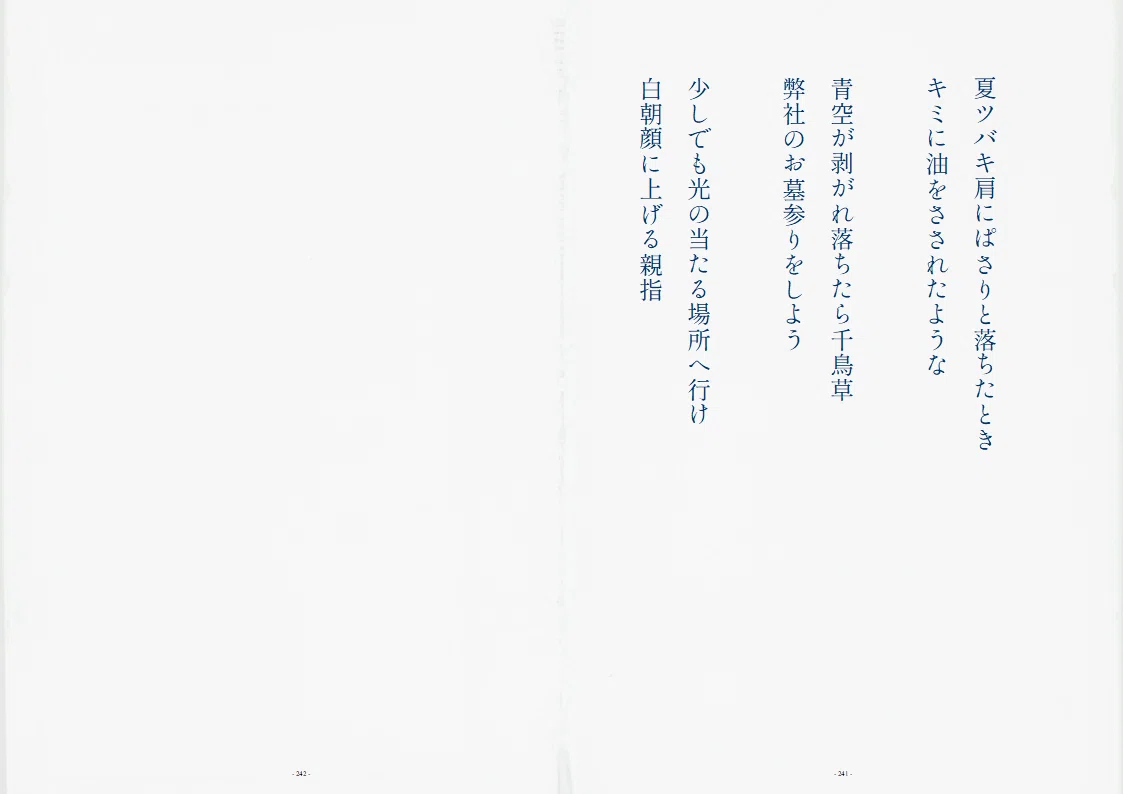 夏ツバキ肩にぱさりと落ちたとき
キミに油をさされたような
青空が剥がれ落ちたら千鳥草
弊社のお墓参りをしよう
少しでも光の当たる場所へ行け
白朝顔に上げる親指
- 241 -
- 242 -